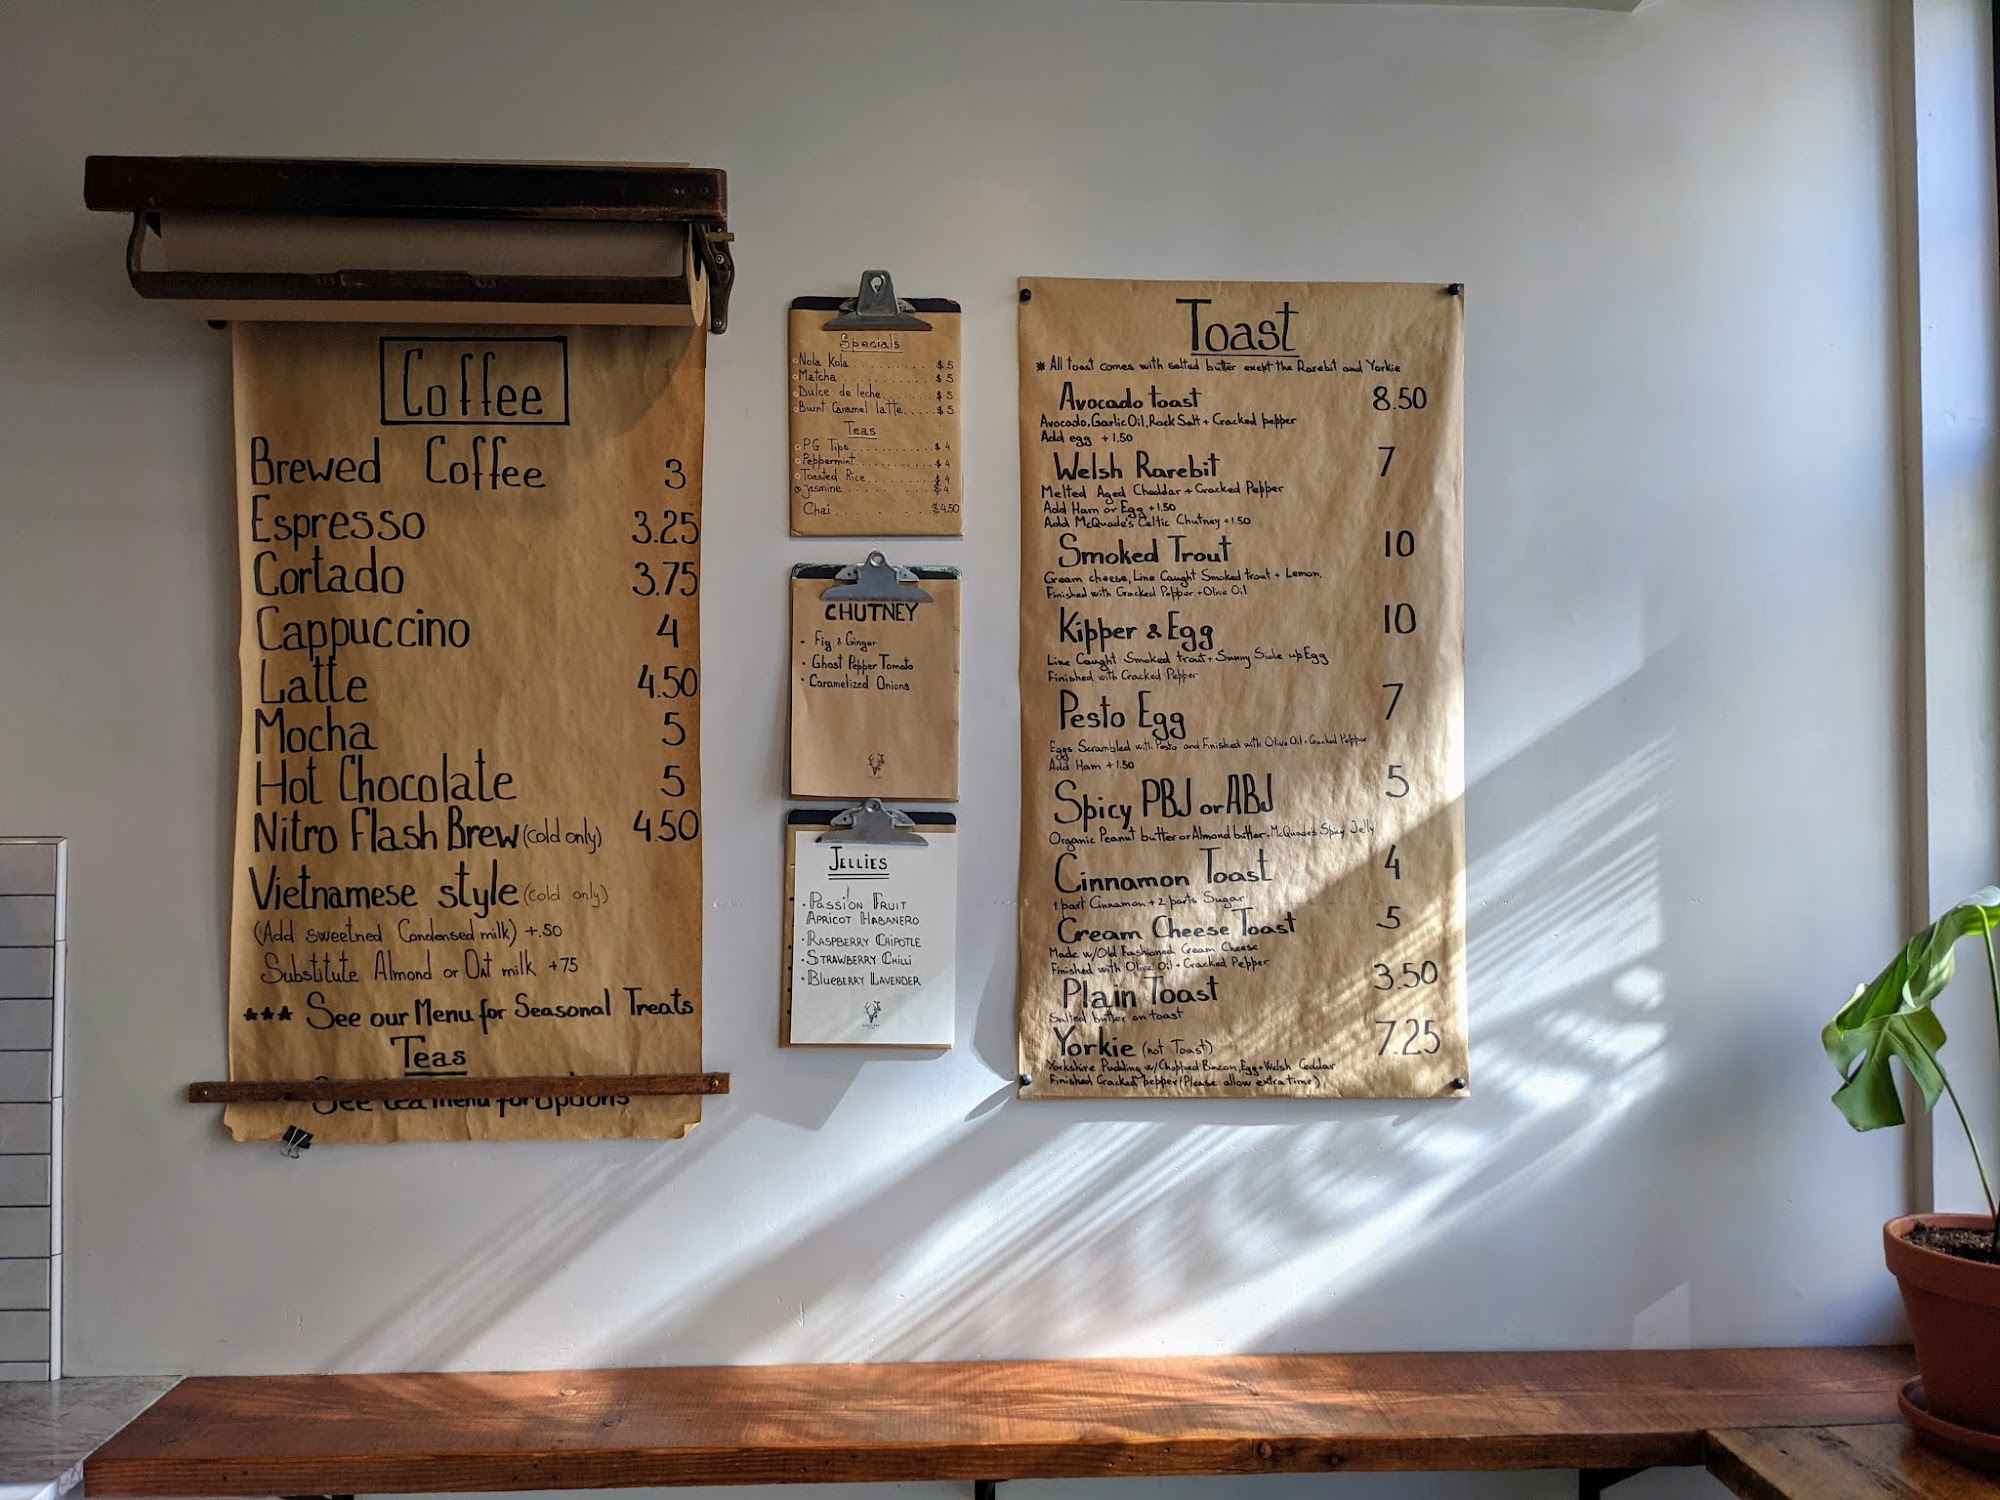 Coffee
Brewed Coffee 3
Espresso 3.25
Cortado 3.75
Cappuccino 4
Latte 4.50
Mocha 5
Hot Chocolate 5
Nitro Flash Brew (cold only) 4.50
Vietnamese style (cold only)
(Add sweetned Condensed milk) +.50
Substitute Almond or Oat milk +75
*** See our Menu for Seasonal Treats
Teas
See tea menu for options
Specials
Nola Kola ........ $5
Matcha ........ $5
Dulce de leche ........ $5
Burnt Caramel latte ..... $5
Teas
PG Tips ........ $4
Peppermint ........ $4
Toasted Rice ........ $4
Jasmine ........ $4
Chai ........ $4.50
CHUTNEY
• Fig & Ginger
• Ghost Pepper Tomato
• Caramelized Onions
JELLIES
• PASSION FRUIT
APRICOT HABANERO
• RASPBERRY CHIPOTLE
• STRAWBERRY CHILLI
• BLUEBERRY LAVENDER
Toast
* All toast comes with salted butter exept the Rarebit and Yorkie
Avocado toast 8.50
Avocado, Garlic Oil, Rock Salt + Cracked pepper
Add egg +1.50
Welsh Rarebit 7
Melted Aged Cheddar + Cracked Pepper
Add Ham or Egg +1.50
Add McQuade's Celtic Chutney +1.50
Smoked Trout 10
Cream cheese, Line Caught Smoked trout + Lemon.
Finished with Cracked Pepper + Olive Oil
Kipper & Egg 10
Line Caught Smoked trout + Sunny Side up Egg
Finished with Cracked Pepper
Pesto Egg 7
Eggs Scrambled with Pesto and Finished with Olive Oil + Cracked Pepper
Add Ham +1.50
Spicy PBJ or ABJ 5
Organic Peanut butter or Almond butter + McQuade's Spicy Jelly
Cinnamon Toast 4
1 part Cinnamon + 2 parts Sugar
Cream Cheese Toast 5
Made w/Old Fashioned Cream Cheese
Finished with Olive Oil + Cracked Pepper
Plain Toast 3.50
Salted butter on toast
Yorkie (not Toast) 7.25
Yorkshire Pudding w/Chopped Bacon, Egg + Welsh Ceddar
Finished Cracked pepper (Please allow extra time)